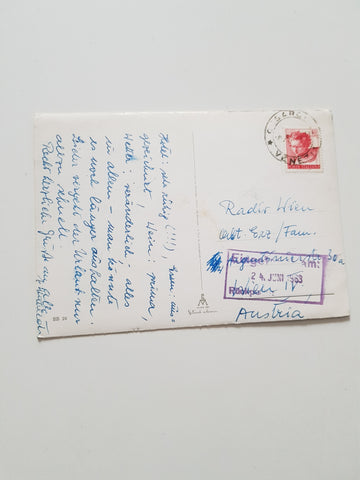 Hotel: sehr ruhig (!!!), Essen: aus-
gezeichnet, Wein: prima,
Wetter: wunderschön; alles
in allem – man könnte
es noch länger aushalten.
Leider vergeht der Urlaub nur
allzu schnell.
Recht herzliche Grüße an alle
VENEZ
Radio Wien
Abt. Erz/Fam.
Argentinierstr. 30a
24. JUNI 1963
Wien IV
Austria
BB 26